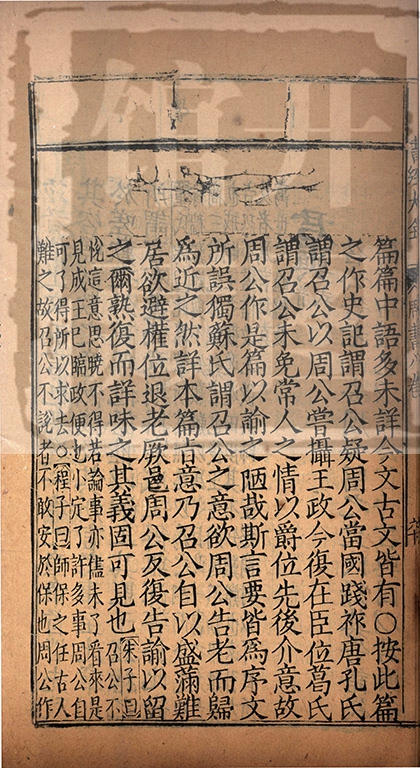 篇篇中語多未詳今文古文皆有○按此篇
之作史記謂召公疑周公當國踐祚唐孔氏
謂召公以周公嘗攝王政今復在臣位葛氏
謂召公未免常人之情以爵位先後介意故
周公作是篇以諭之陋哉斯言要皆為序文
所誤獨蘇氏謂召公之意欲周公告老而歸
為近之然詳本篇旨意乃召公自以盛滿難
居欲避權位退老厥邑周公反復告諭以留
之爾熟復而詳味之其義固可見也朱子曰
召公不
恱這意思曉不得若論事亦儘未了看來是
見成王已臨政便也小定了許多事周公自
可了得所以求去○程子曰師保之任古人
難之故召公不說者不敢安於保也周公作